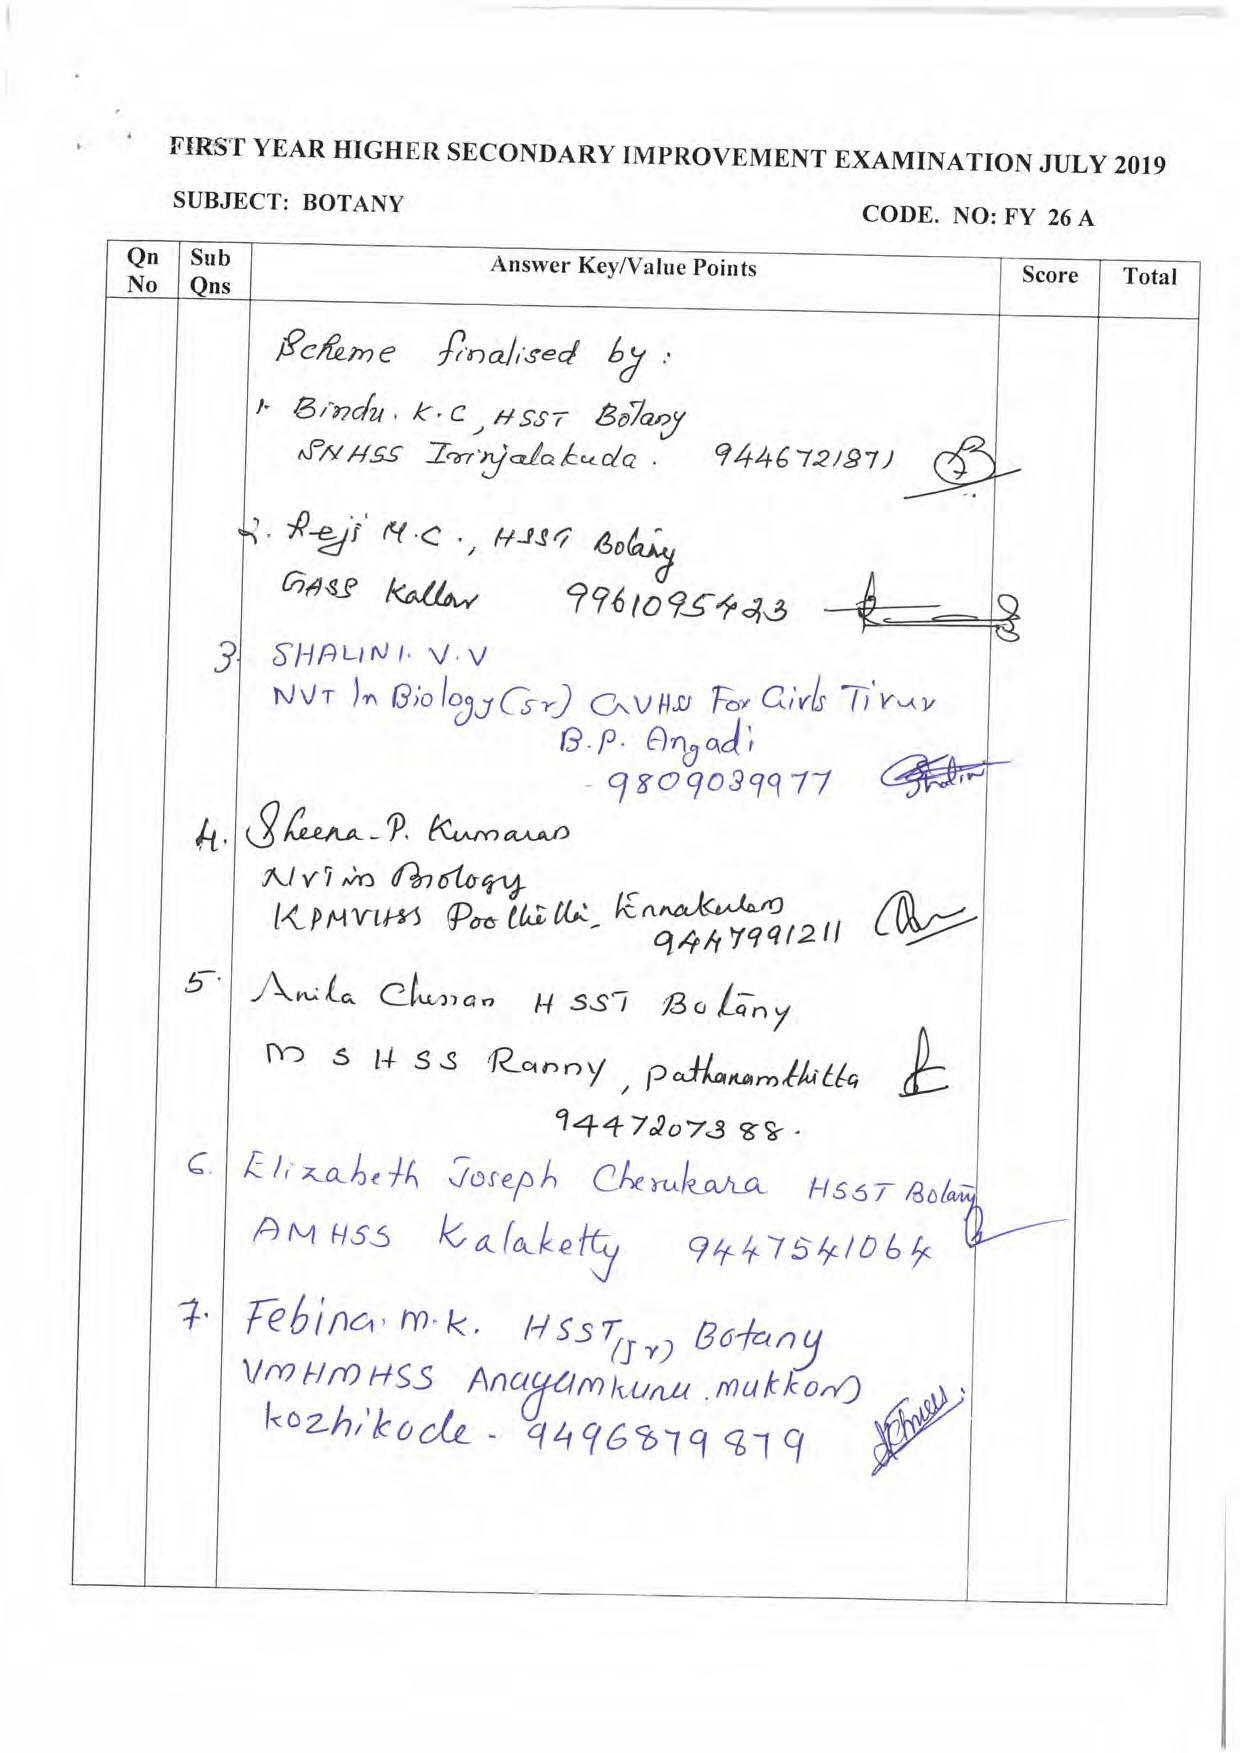 FIRST YEAR HIGHER SECONDARY IMPROVEMENT EXAMINATION JULY 2019
SUBJECT: BOTANY CODE. NO: FY 26 A
Qn No Sub Qns Answer Key/Value Points Score Total
Scheme finalised by :
1. Bindu. K.C, HSST Botany
SNHSS Irinjalakuda. 9446721871
2. Reji M.C., HSST Botany
Kallar 9961095423
3. SHALINI. V.V
NVT In Biology (sr) GVHSS For Girls Tirur
B.P. Angadi
- 9809039977
4. Sheena P. Kumaran
NVT in Biology
KPMVHSS Poothotta, Ernakulam
9447991211
5. Anila Cherian HSST Botany
M S H S S Ranny, pathanamthitta
9447207388.
6. Elizabeth Joseph Cherukara HSST Botany
AMHSS Kalaketty 9447541064
7. Febina. M.K. HSST (Jr) Botany
VMHMHSS Anayamkunu. mukkom
kozhikode - 9496879879